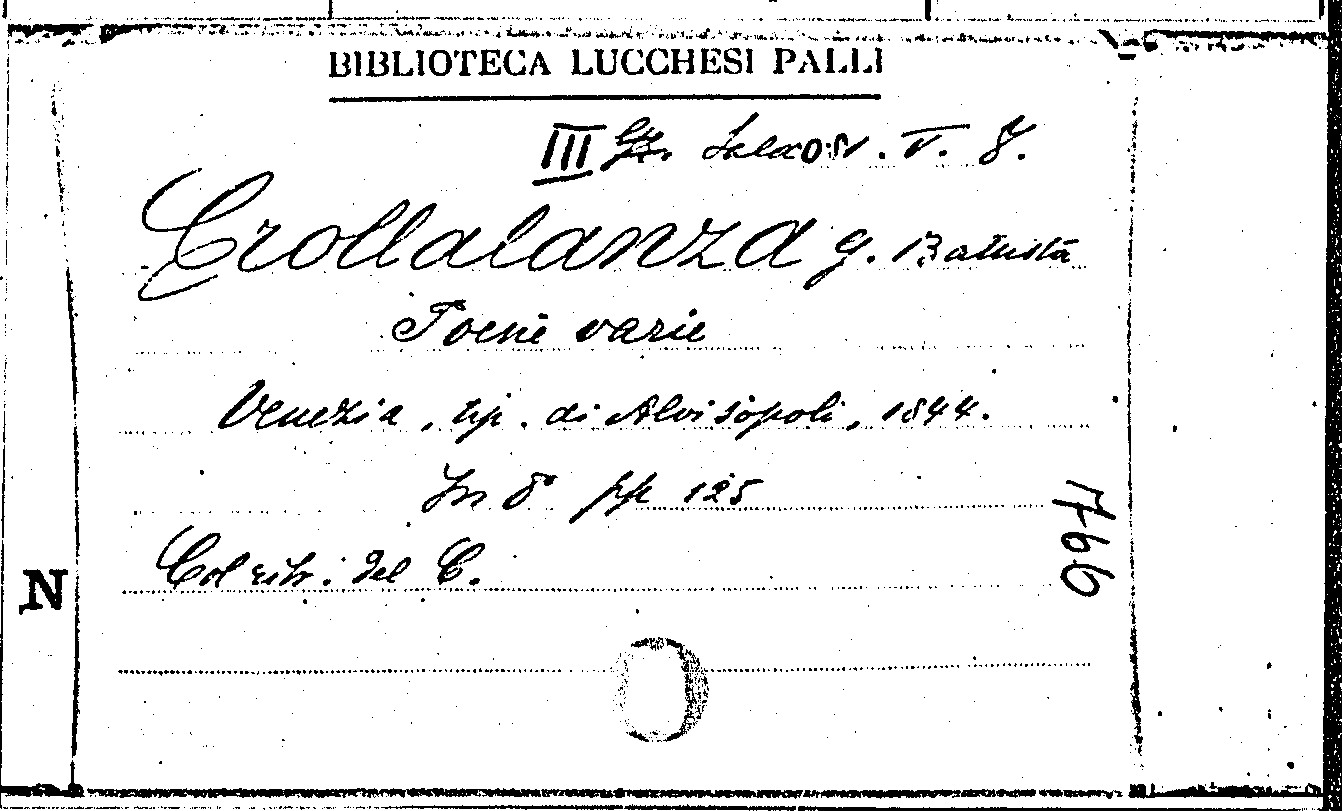 BIBLIOTECA LUCCHESI PALLI
III Gr. V. 8.
Crollalanza G. Battista
Poesie varie
Venezia, tip. di Alvisopoli, 1844.
In 8° pp 125
Col ritr. del C.
N
766